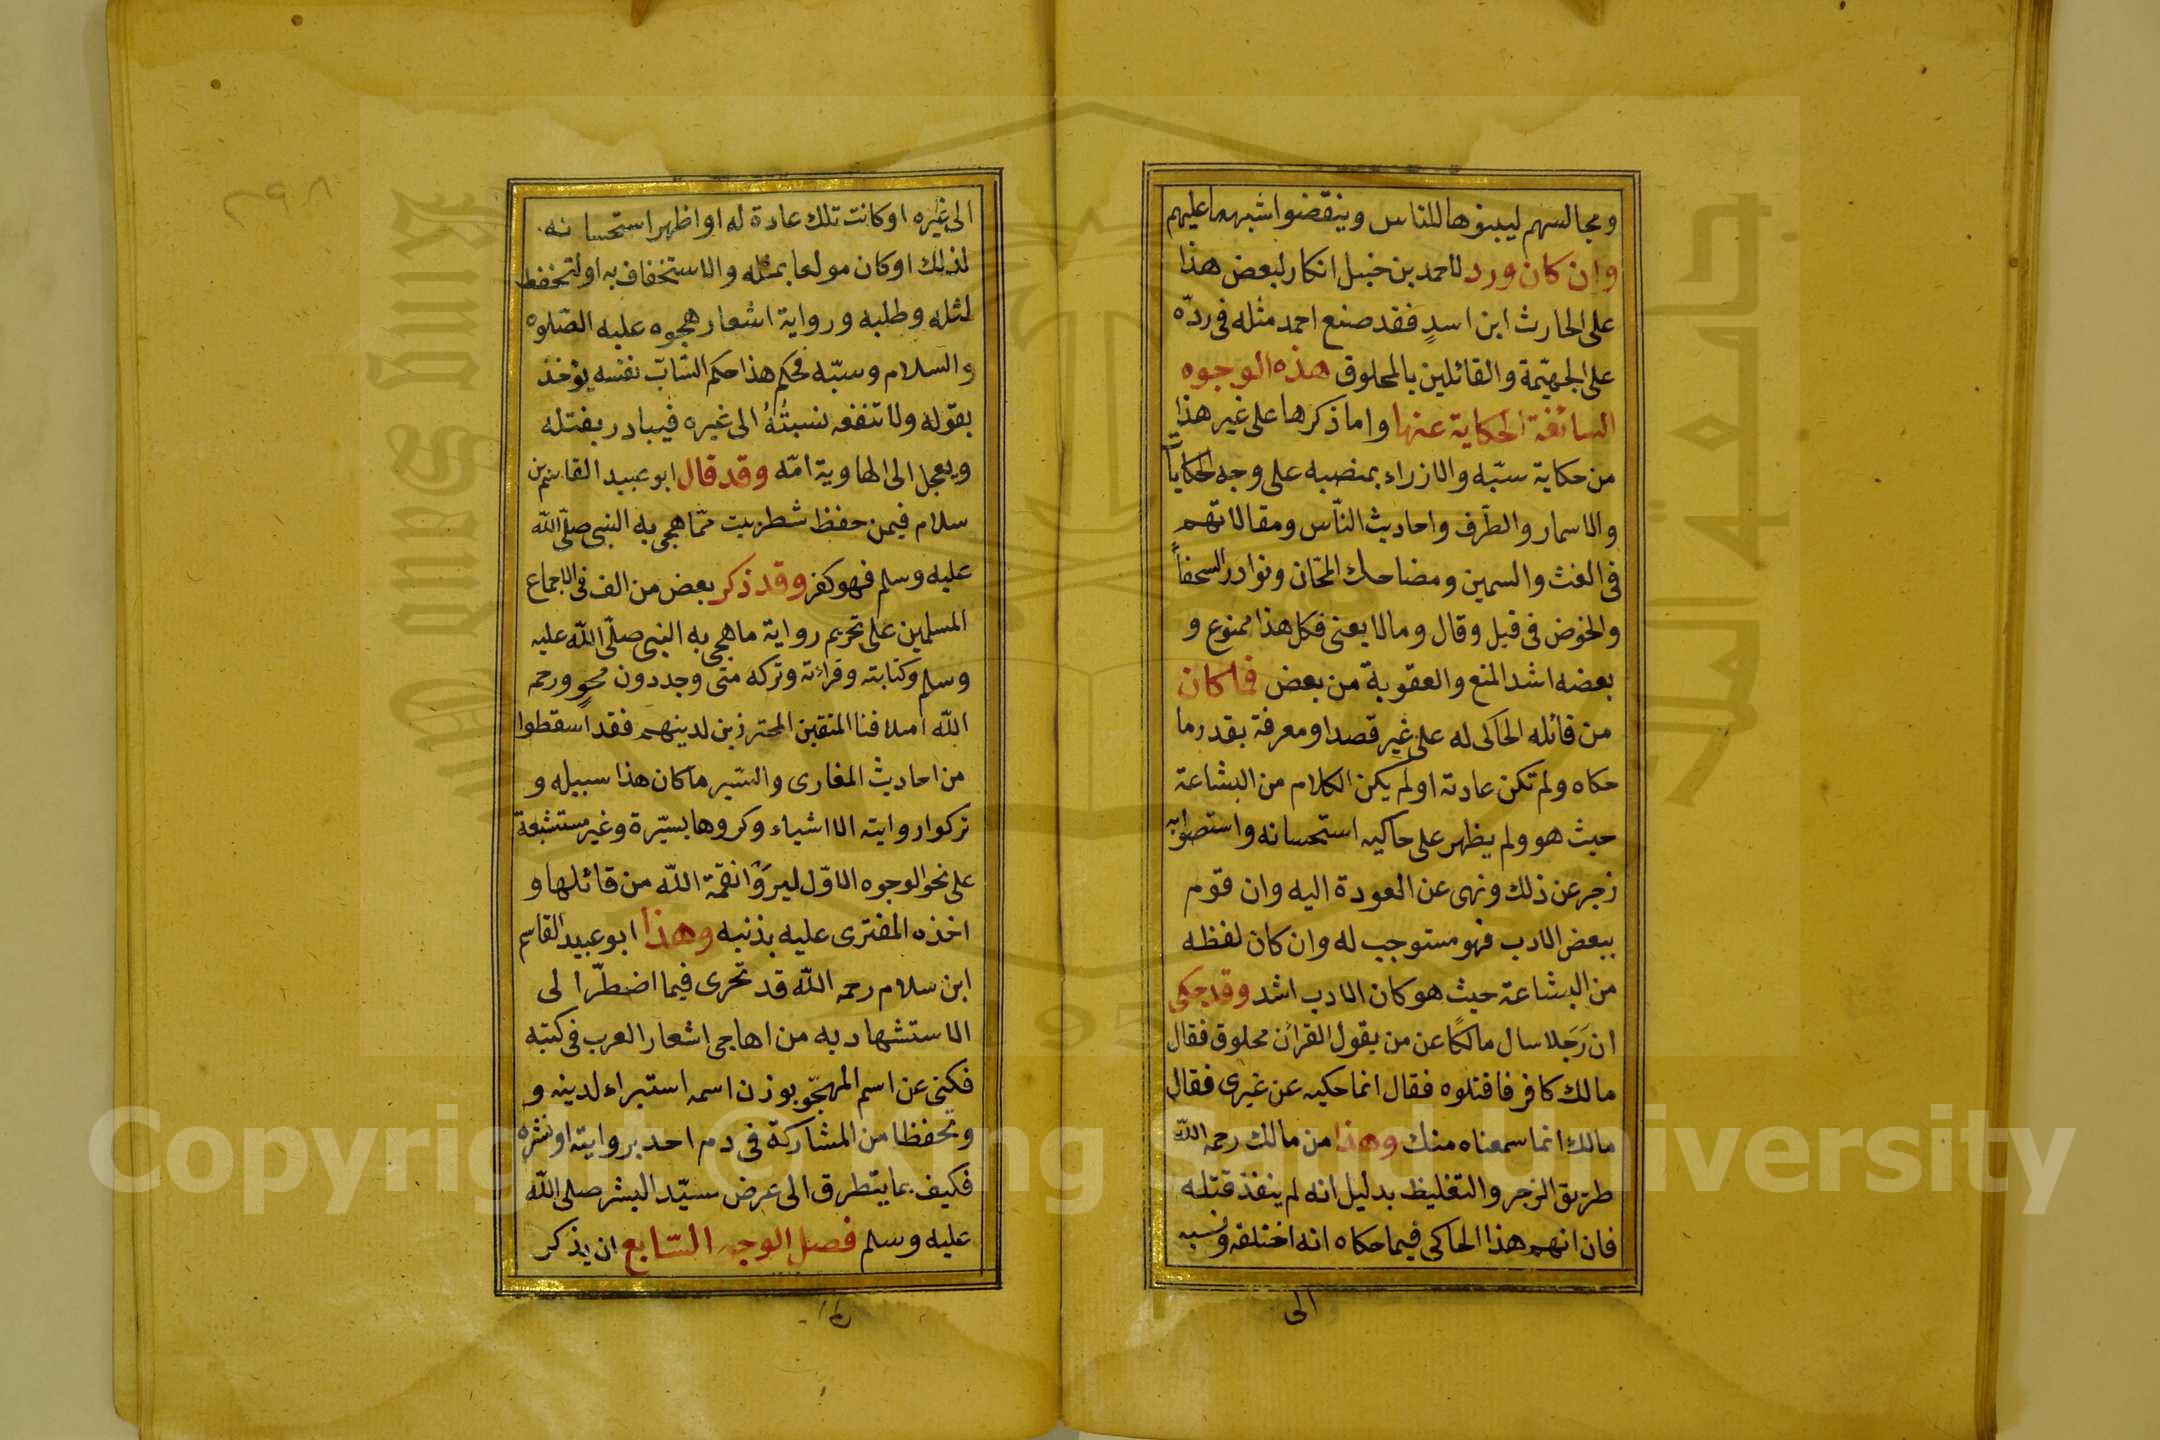 ومجالسهم ليبينوها للناس وينقضوا شبهها عليهم
وان كان ورد لاحمد بن حنبل انكار لبعض هذا
على الحارث ابن اسدٍ فقد صنع احمد مثله فى ردّه
على الجهميّة والقائلين بالمخلوق هذه الوجوه
السائغة الحكاية عنها واما ذكرها على غير هذا
من حكاية سبّه والازراء بمنصبه على وجه الحكايات
والاسمار والطّرف واحاديث النّاس ومقالاتهم
فى الغث والسمين ومضاحك المجّان ونوادر السخفاً
والخوض فى قيل وقال ومالا يعنى فكل هذا ممنوع و
بعضه اشد المنع والعقوبة من بعض فما كان
من قائله الحاكى له على غير قصد او معرفة بقدر ما
حكاه ولم تكن عادته او لم يكن الكلام من البشاعة
حيث هو ولم يظهر على حاكيه استحسانه واستصوابه
زجر عن ذلك ونهى عن العودة اليه وان قوم
ببعض الادب فهو مستوجب له وان كان لفظه
من البشاعة حيث هو كان الادب اشد وقد حكى
ان رَجلا سال مالكًا عن من يقول القرآن مخلوق فقال
مالك كافر فاقتلوه فقال انما حكيه عن غيرى فقال
مالك انما سمعناه منك وهذا من مالك رحمه اللّه
طريق الزجر والتغليظ بدليل انه لم ينفذ قتله
فان اتهم هذا الحاكى فيما حكاه انه اختلقه ونسبه
الى
الى غيره او كانت تلك عادة له او اظهر استحسانه
لذلك او كان مولعا بمثله والاستخفاف به او لتحفظ
لمثله وطلبه ورواية اشعار هجوه عليه الصّلوه
والسلام وسبّه فحكم هذا حكم السّابّ نفسه يؤخذ
بقوله ولا تنفعه نسبتُهُ الى غيره فيبادر بقتله
ويعجل الى الهاوية امّه وقد قال ابو عبيد القاسم بن
سلام فيمن حفظ شطر بيت ممّا هجى به النبى صلّى اللّه
عليه وسلم فهو كفر وقد ذكر بعض من الف فى الاجماع
المسلمين على تحريم رواية ما هجى به النبى صلّى اللّه عليه
وسلم وكتابته وقراءته وتركه متى وجد دون محوٍ ورحم
اللّه اسلافنا المتقين المحترزين لدينهم فقد اسقطوا
من احاديث المغازى والسّير ما كان هذا سبيله و
تركوا روايته الا اشياء وكروها يسيّرة وغير مستشبعة
على نحو الوجوه الاوّل ليرَوْا نقمة اللّه من قائلها و
اخذه المفترى عليه بذنبه وهذا ابو عبيد القاسم
ابن سلام رحمه اللّه قد تحرى فيما اضطرّ الى
الاستشهاد به من اهاجى اشعار العرب فى كتبه
فكنى عن اسم المهجّو بوزن اسمه استبراء لدينه و
وتحفظا من المشاركة فى دم احد بروايته او نشره
فكيف بما يتطرق الى عرض سيّد البشر صلى اللّه
عليه وسلم فصل الوجه السّابع ان يذكر
King Saud University
جامعة الملك
Copyright © King Saud University